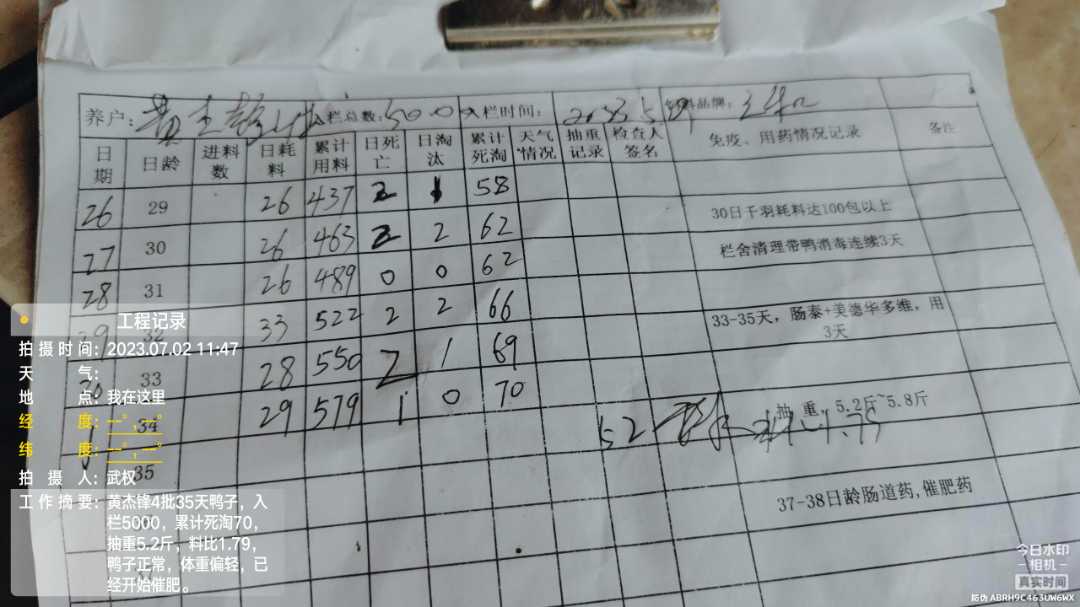 养户: 入栏总数: 5000 入栏时间: 2023.5.29 饲料品牌:
日期 日龄 进料数 日耗料 累计用料 日死亡 日淘汰 累计死淘 天气情况 抽重记录 检查人签名 免疫、用药情况记录 备注
26 29 26 437 2 1 58
30日千羽耗料达100包以上
27 30 26 463 2 2 62
栏舍清理带鸭消毒连续3天
28 31 26 489 0 0 62
29 32 33 522 2 2 66
33-35天，肠泰+美德华多维，用3天
33 28 550 2 1 69
34 29 579 1 0 70
抽重 5.2斤~5.8斤
5.2
35
37-38日龄肠道药,催肥药
工程记录
拍摄时间: 2023.07.02 11:47
天气:
地点: 我在这里
经度: --°, --°
纬度: --°, --°
拍摄人: 武权
工作摘要: 黄杰锋4批35天鸭子，入
栏5000，累计死淘70，
抽重5.2斤，料比1.79，
鸭子正常，体重偏轻，已
经开始催肥。
今日水印
-相机-
真实时间
防伪 ABRH9C463UW6WX